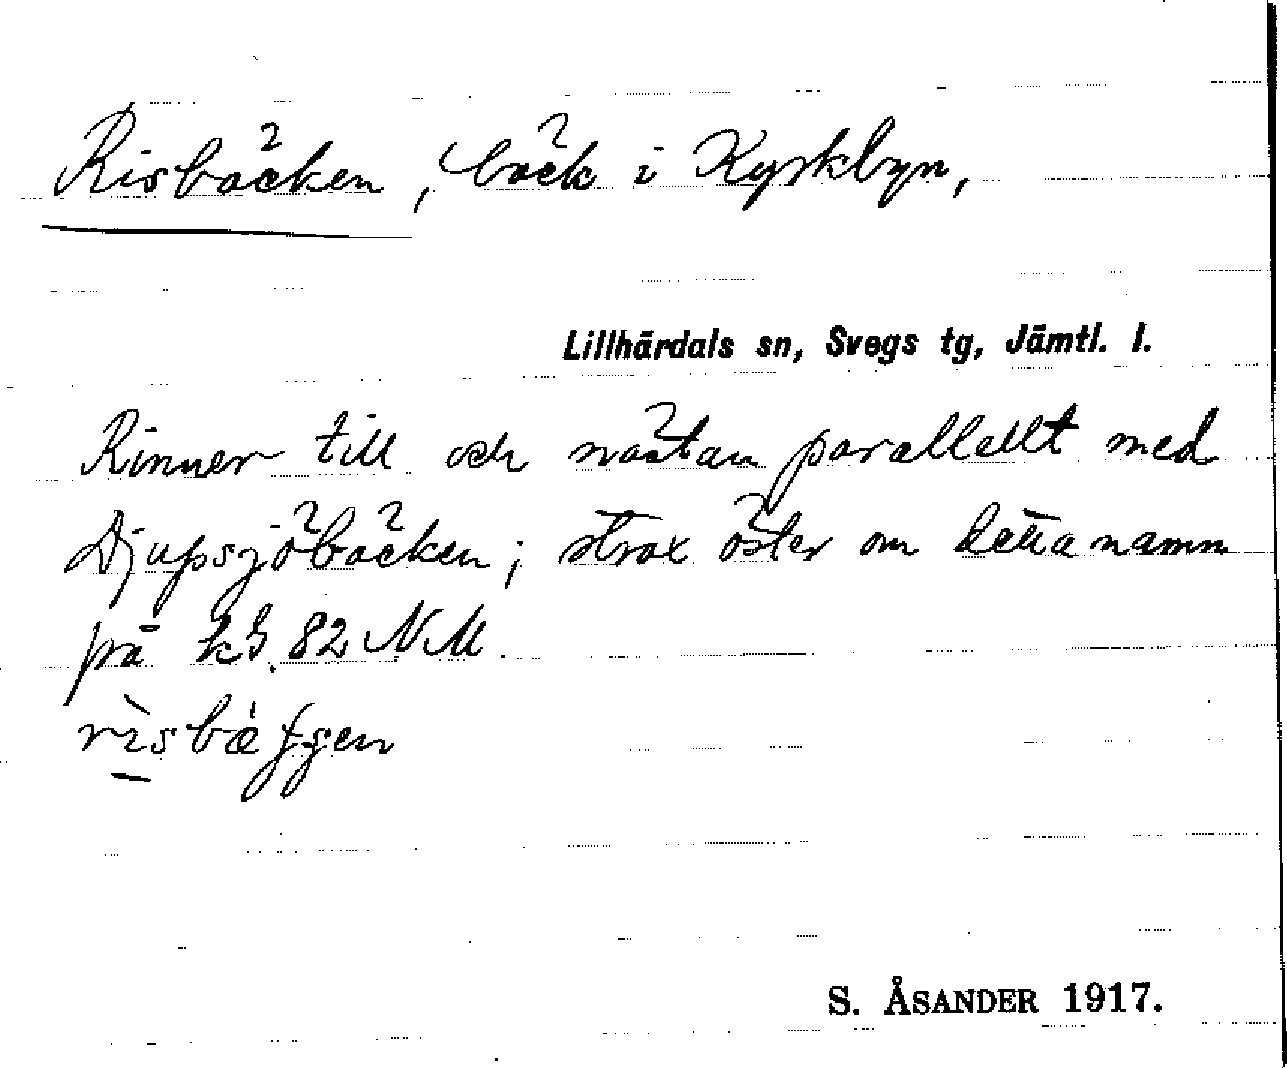 Risbäcken, bäck i Kyrkbyn,
Lillhärdals sn, Svegs tg, Jämtl. l.
Rinner till och nästan parallellt med
Djupsjöbäcken; strax öster om detta namn
på kb. 82 NM.
S. ÅSANDER 1917.